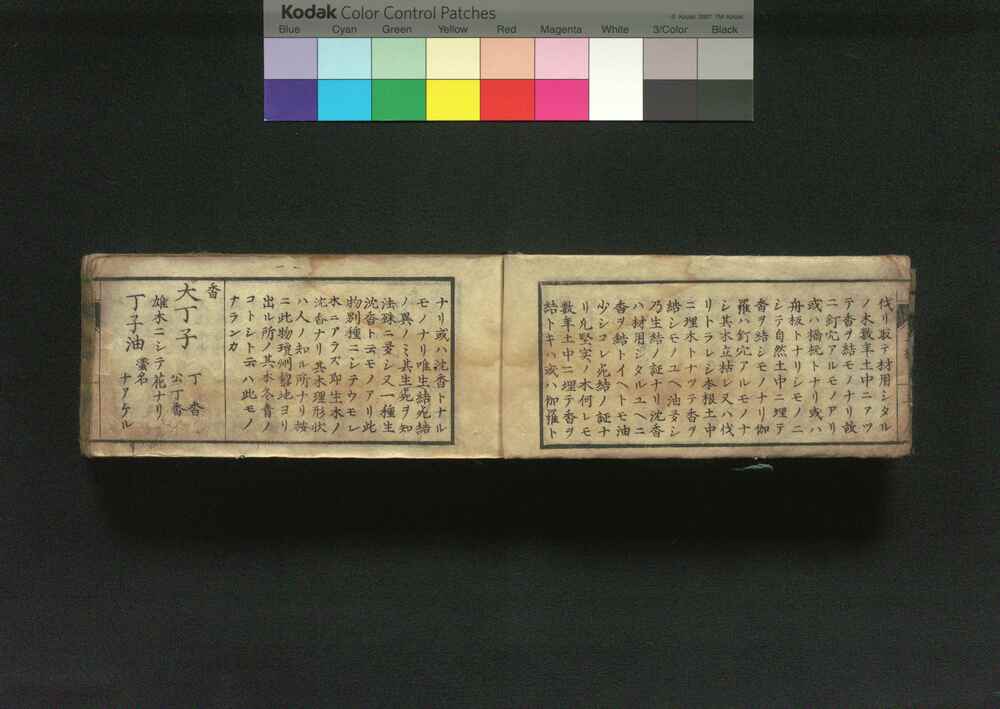 Kodak Color Control Patches
© Kodak, 2007 TM: Kodak
Blue Cyan Green Yellow Red Magenta White 3/Color Black
伐リ取テ材用シタル
ノ木数年土中ニアツ
テ香ヲ結モノナリ故
ニ釘穴アルモノアリ
或ハ橋杭トナリ或ハ
舟板トナリシモノニ
シテ自然土中ニ埋テ
香ヲ結シモノナリ伽
羅ハ釘穴アルモノナ
シ其木立枯レ又ハ伐
リトラレシ本根土中
ニ埋木トナツテ香ヲ
結シモノユヘ油多シ
乃生結ノ証ナリ沈香
ハ材用シタルユヘニ
香ヲ結トイヘトモ油
少シコレ死結ノ証ナ
リ凡堅実ノ木何レモ
数年土中ニ埋テ香ヲ
結トキハ或ハ伽羅ト
ナリ或ハ沈香トナル
モノナリ唯生結死結
ノ異ノミ其生死ヲ知
法殊ニ委シ又一種生
沈香ト云モノアリ此
物別種ニシテウモレ
木ニアラズ即生木ノ
沈香ナリ其木理形状
ハ人ノ知ル所ナリ按
ニ此物瓊州韶地ヨリ
出ル所ノ其木冬青ノ
コトシト云ハ此モノ
ナランカ
香
大丁子 丁香 公丁香
雄木ニシテ花ナリ
丁子油 蛮名 ナアケル